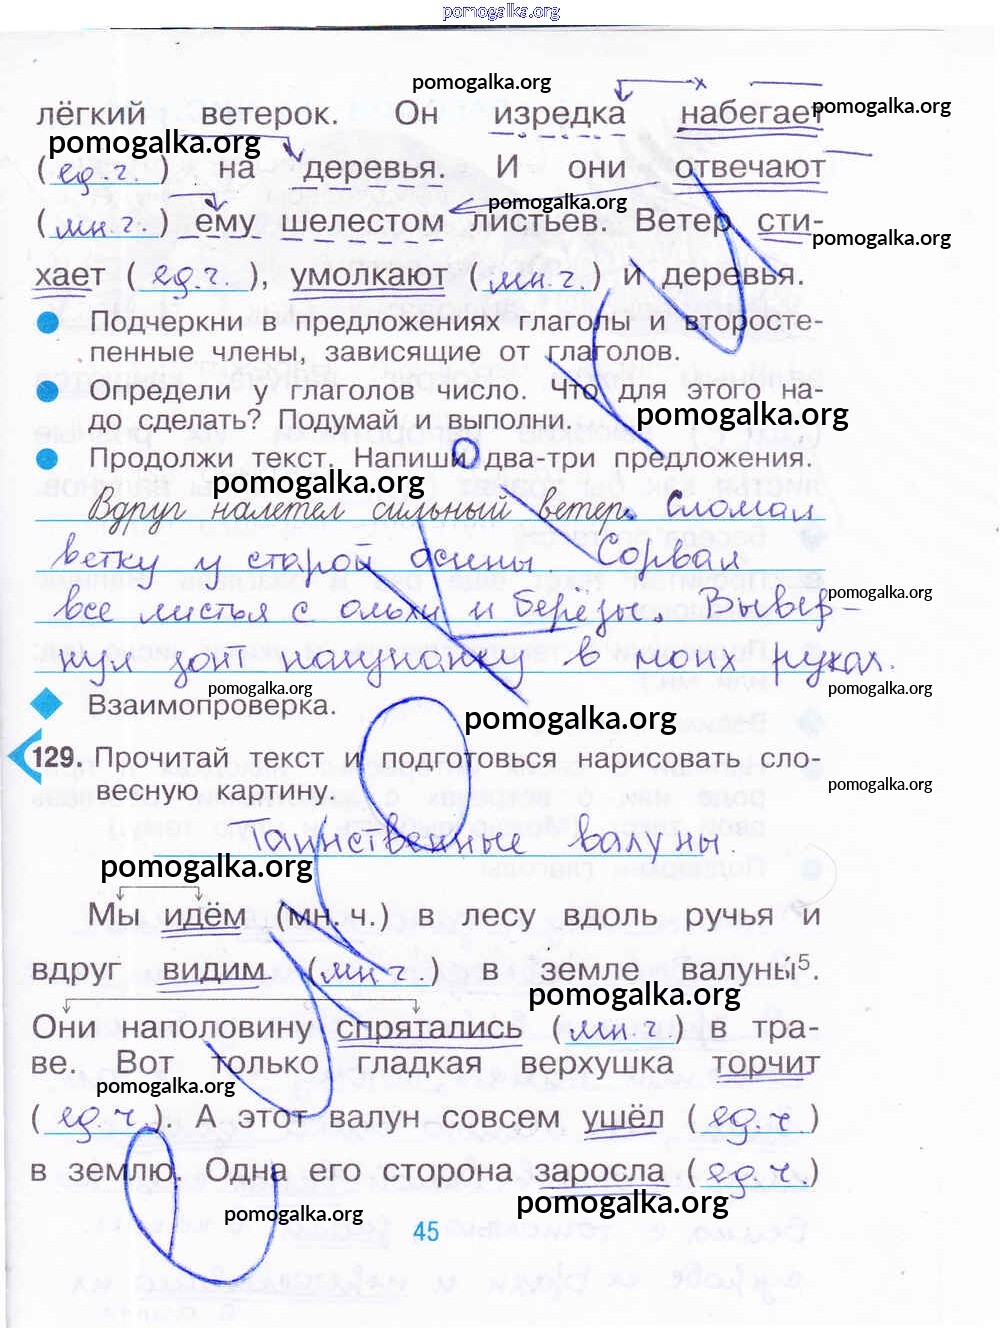 pomogalka.org
pomogalka.org
лёгкий ветерок. Он изредка набегает pomogalka.org
pomogalka.org
(ед.ч.) на деревья. И они отвечают
pomogalka.org
(мн.ч.) ему шелестом листьев. Ветер сти-
pomogalka.org
хает (ед.ч.), умолкают (мн.ч.) и деревья.
Подчеркни в предложениях глаголы и второсте-
пенные члены, зависящие от глаголов.
Определи у глаголов число. Что для этого на-
до сделать? Подумай и выполни.
pomogalka.org
Продолжи текст. Напиши два-три предложения.
pomogalka.org
Вдруг налетел сильный ветер. Сломал
ветку у старой осины. Сорвал
pomogalka.org
все листья с ольхи и берёзы. Вывер-
нул зонт наизнанку в моих руках.
pomogalka.org pomogalka.org
Взаимопроверка.
pomogalka.org
129. Прочитай текст и подготовься нарисовать сло-
весную картину. pomogalka.org
Таинственные валуны.
pomogalka.org
Мы идём (мн. ч.) в лесу вдоль ручья и
вдруг видим (мн.ч.) в земле валуны5.
pomogalka.org
Они наполовину спрятались (мн.ч.) в тра-
ве. Вот только гладкая верхушка торчит
pomogalka.org
(ед.ч.). А этот валун совсем ушёл (ед.ч.)
в землю. Одна его сторона заросла (ед.ч.)
pomogalka.org pomogalka.org
45